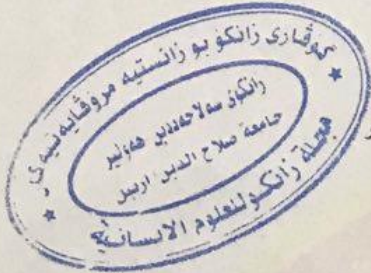 گۆڤاری زانکۆ بو زانستیه مرۆڤایەتییەکان
زانکۆی سەلاحەددین هەولێر
جامعة صلاح الدين اربيل
مجلة زانكو للعلوم الانسانية